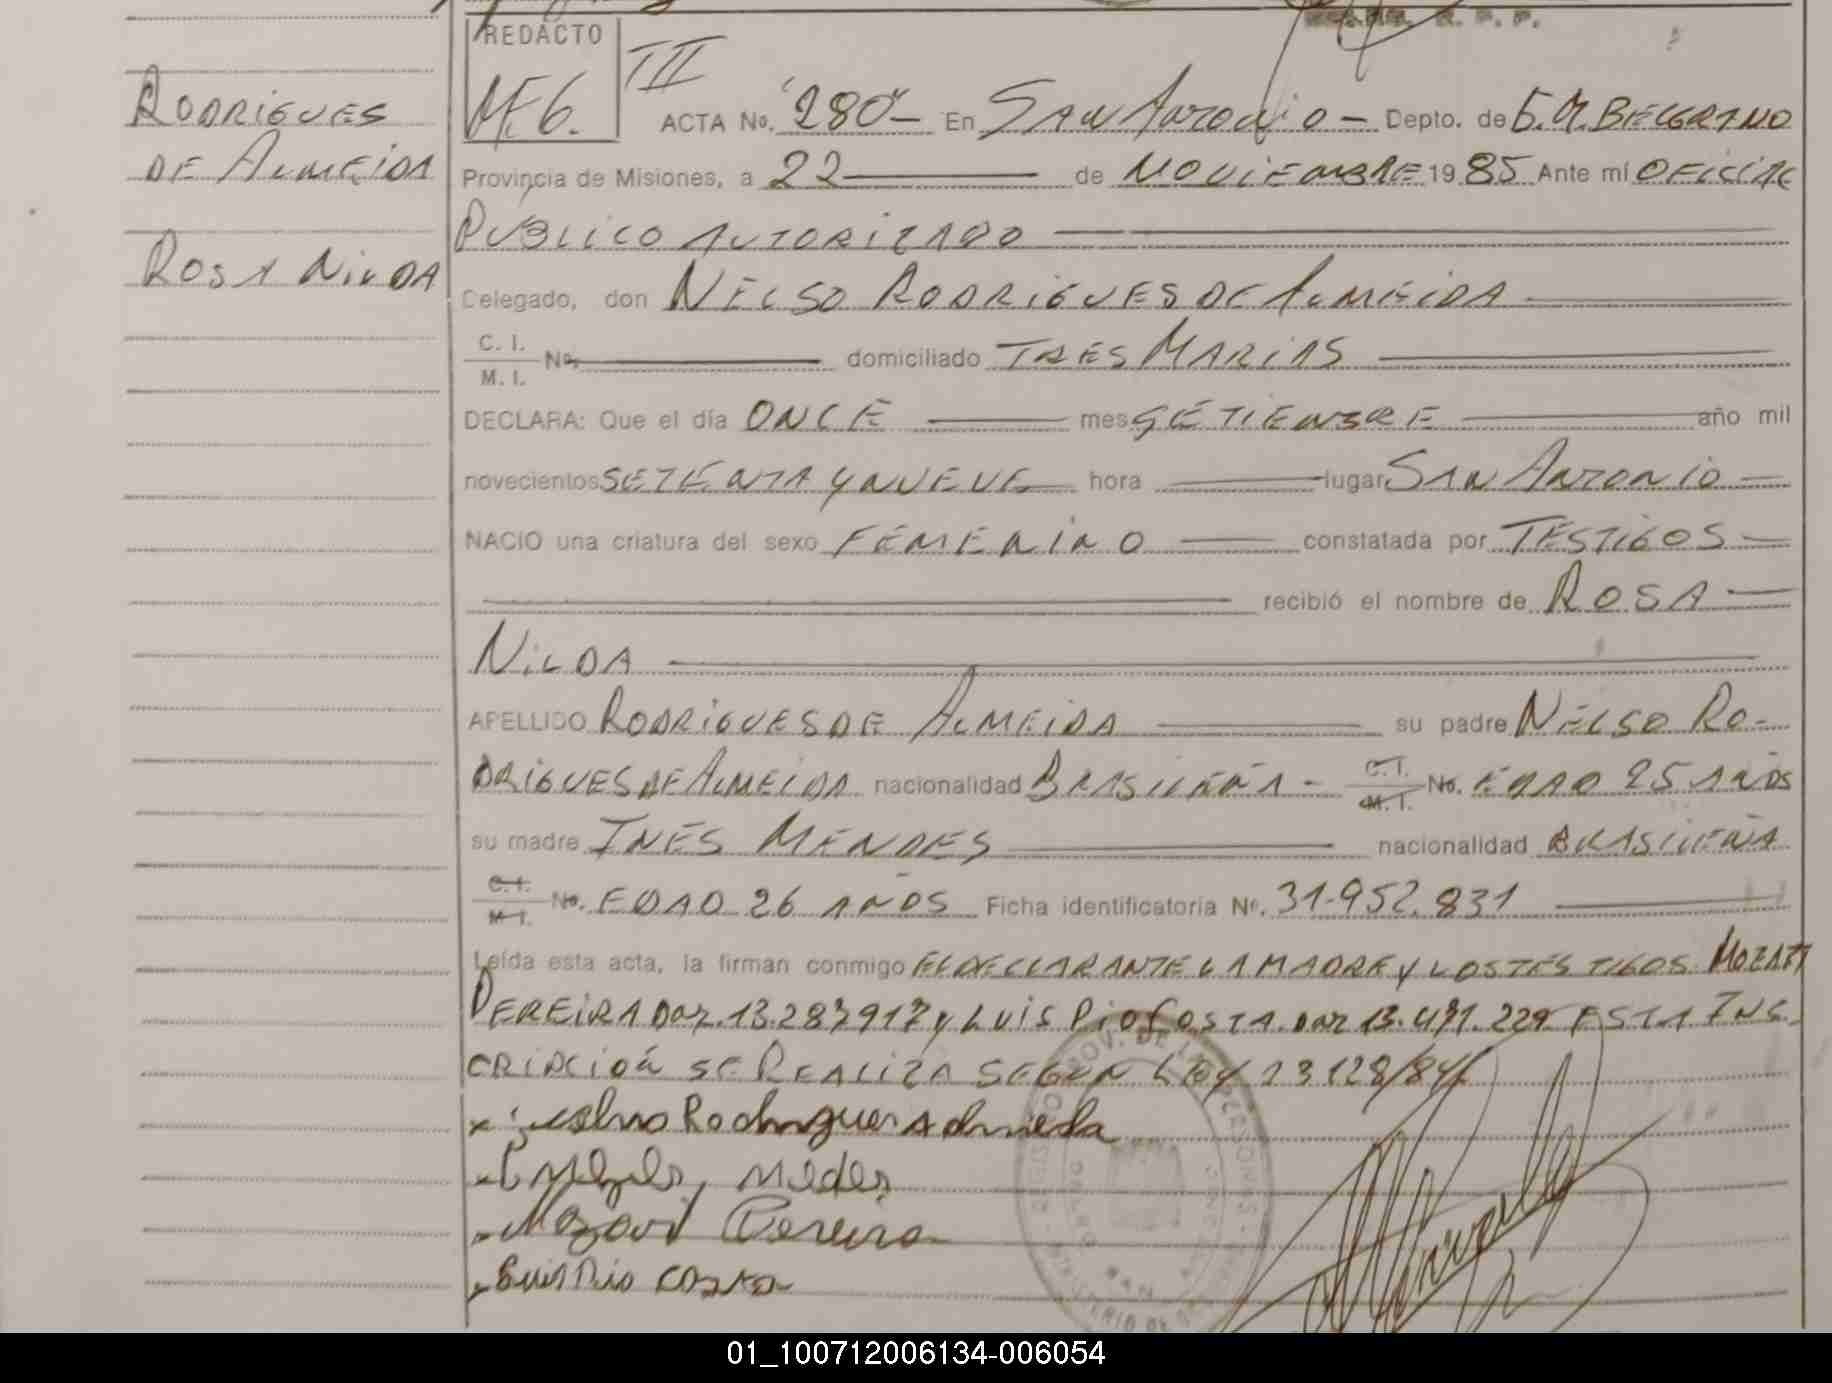 REDACTO
M.F.6.
III
RODRIGUES
DE ALMEIDA
ROSA NILDA
ACTA No. 280- En SAN ANTONIO - Depto. de G. M. BELGRANO
Provincia de Misiones, a 22 de NOVIEMBRE 1985 Ante mí OFICIAL
PUBLICO AUTORIZADO
Delegado, don NELSO RODRIGUES DE ALMEIDA
C. I.
M. I. No. domiciliado TRES MARIAS
DECLARA: Que el día ONCE mes SETIEMBRE año mil
novecientos SETENTA Y NUEVE hora lugar SAN ANTONIO
NACIO una criatura del sexo FEMENINO constatada por TESTIGOS
recibió el nombre de ROSA
NILDA
APELLIDO RODRIGUES DE ALMEIDA su padre NELSO RO-
DRIGUES DE ALMEIDA nacionalidad BRASILEÑA - C. I. M. I. No. EDAD 25 AÑOS
su madre INES MENDES nacionalidad BRASILEÑA
C. I. M. I. No. EDAD 26 AÑOS Ficha identificatoria Nº. 31.952.831
Leída esta acta, la firman conmigo EL DECLARANTE LA MADRE Y LOS TESTIGOS MOZART
PEREIRA DNI. 13.287917 y LUIS PIO COSTA. DNI 13.471.229 ESTA INS-
CRIPCIÓN SE REALIZA SEGUN LEY 23128/84
Rodrigues Almeida
Pereira
Luis Pio Costa
01_100712006134-006054